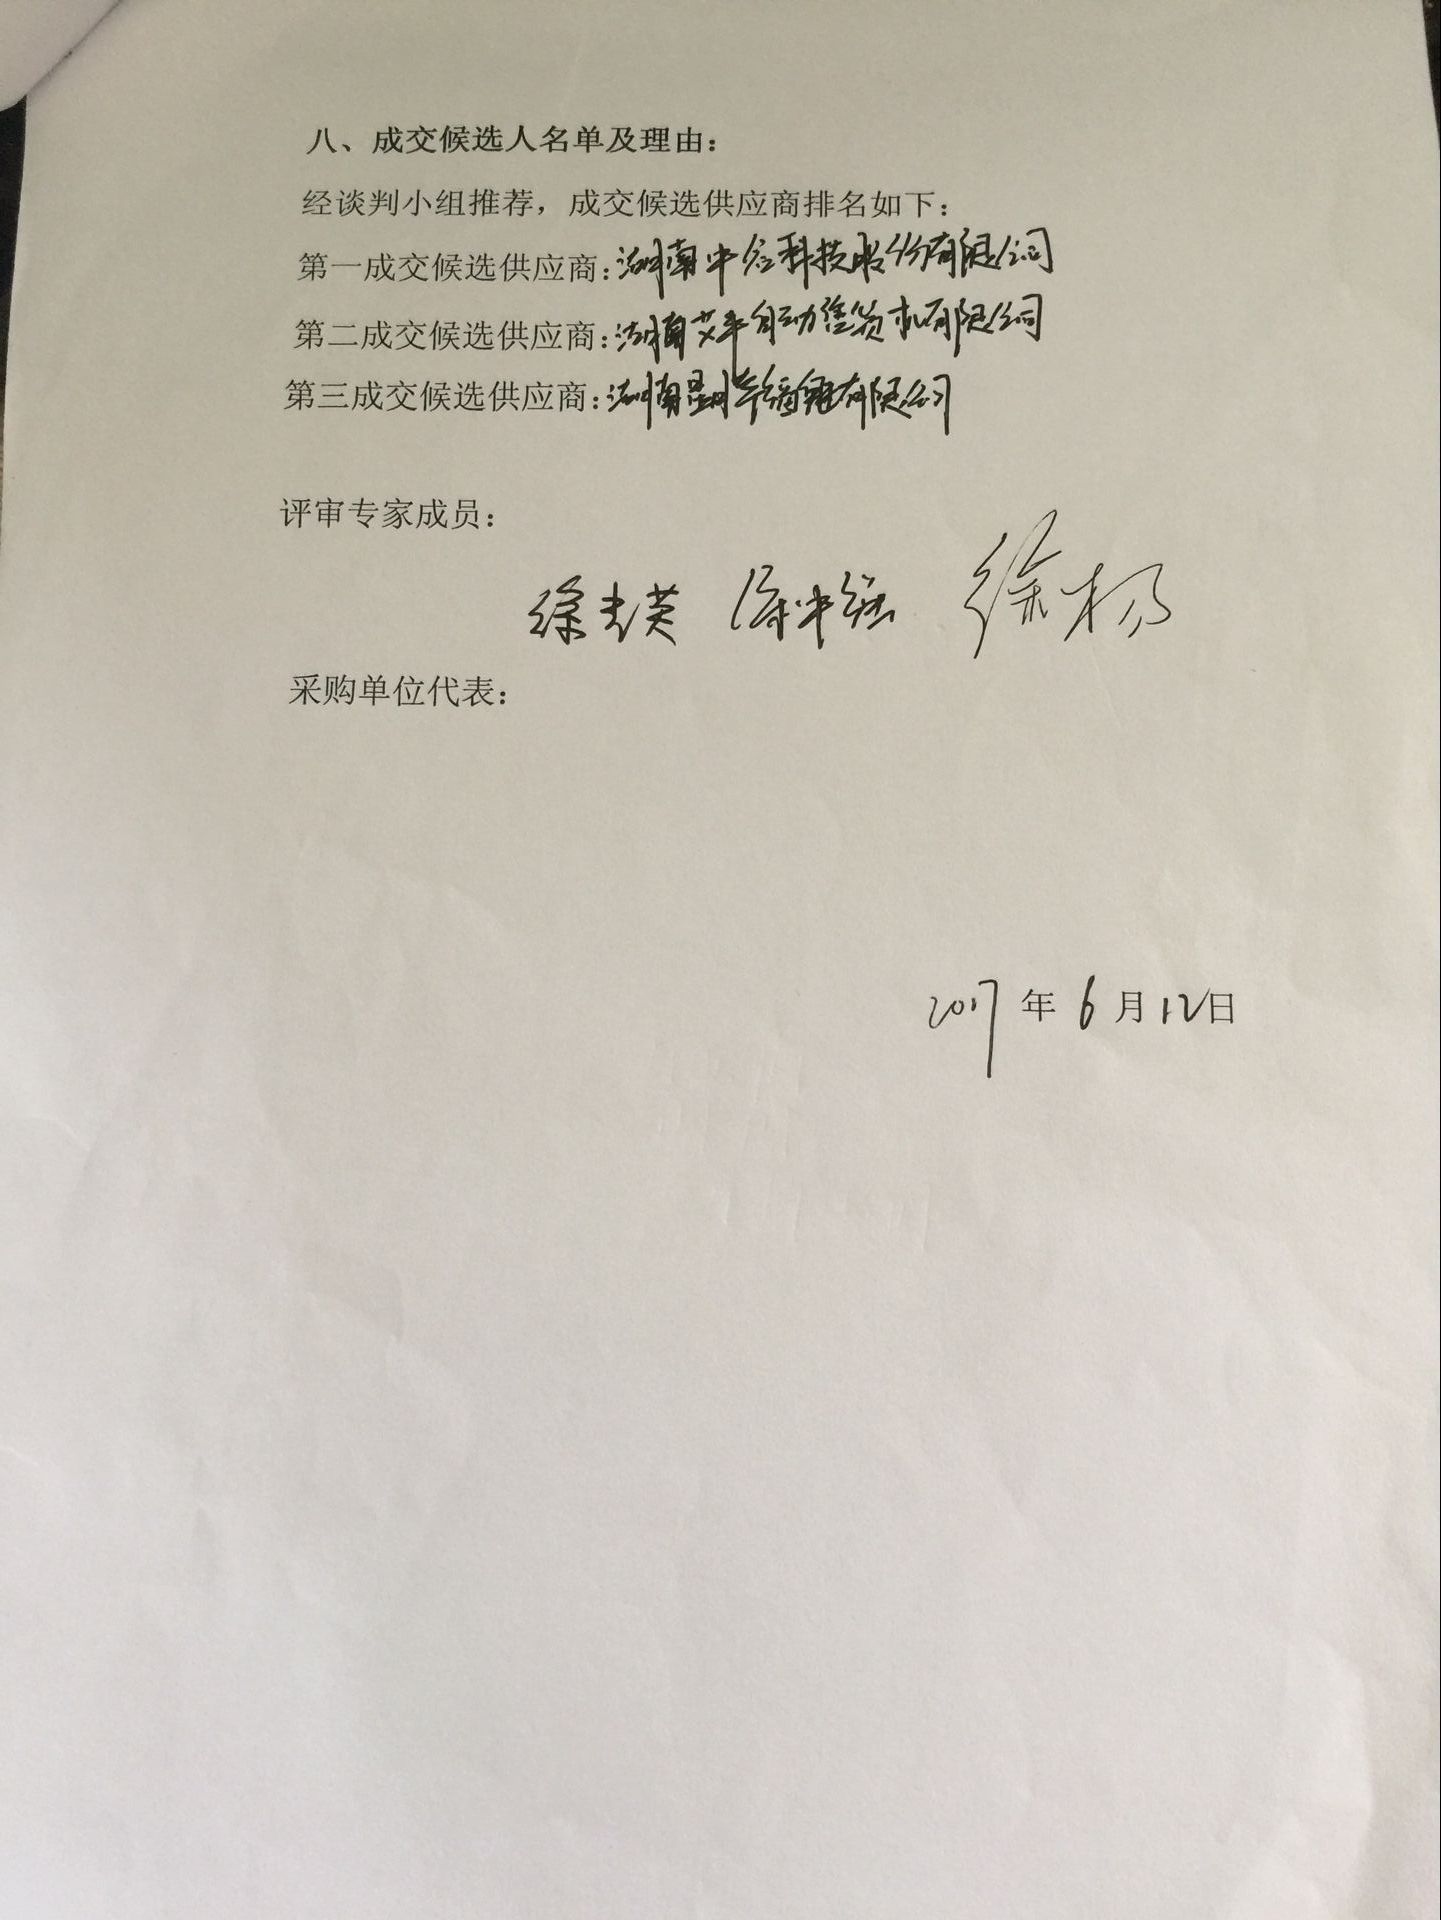 八、成交候选人名单及理由：
经谈判小组推荐，成交候选供应商排名如下：
第一成交候选供应商：湖南中谷科技股份有限公司
第二成交候选供应商：湖南艾丰自动售货机有限公司
第三成交候选供应商：湖南 有限公司
评审专家成员：
徐 英 徐杨
采购单位代表：
2017年6月12日